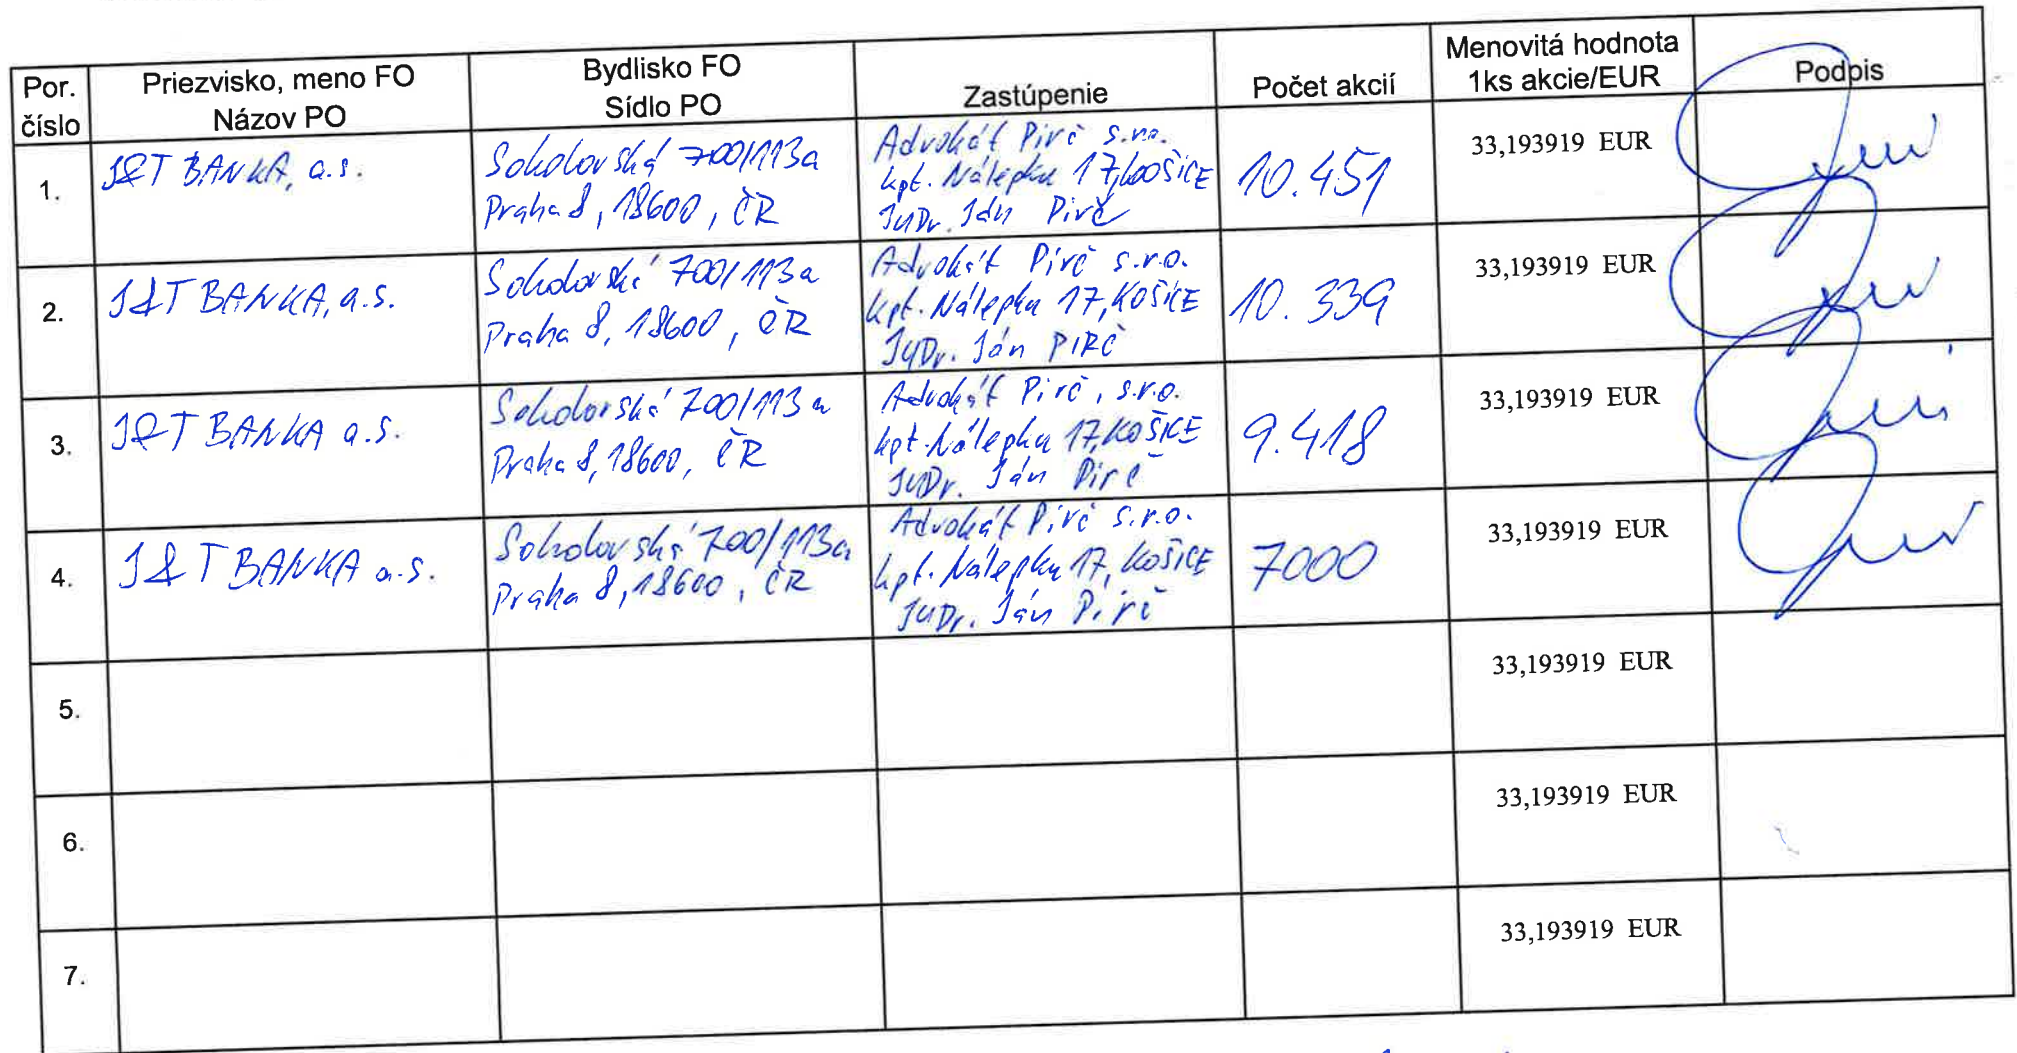 Por. číslo
Priezvisko, meno FO
Názov PO
Bydlisko FO
Sídlo PO
Zastúpenie
Počet akcií
Menovitá hodnota
1ks akcie/EUR
Podpis
1.
J&T BANKA, a.s.
Sokolovská 700/113a
Praha 8, 18600, ČR
Advokát Pirč s.r.o.
kpt. Nálepku 17, KOŠICE
JUDr. Ján Pirč
10.451
33,193919 EUR
2.
J&T BANKA, a.s.
Sokolovská 700/113a
Praha 8, 18600, ČR
Advokát Pirč s.r.o.
kpt. Nálepku 17, KOŠICE
JUDr. Ján PIRČ
10.339
33,193919 EUR
3.
J&T BANKA a.s.
Sokolovská 700/113a
Praha 8, 18600, ČR
Advokát Pirč, s.r.o.
kpt. Nálepku 17, KOŠICE
JUDr. Ján Pirč
9.418
33,193919 EUR
4.
J&T BANKA a.s.
Sokolovská 700/113a
Praha 8, 18600, ČR
Advokát Pirč s.r.o.
kpt. Nálepku 17, KOŠICE
JUDr. Ján Pirč
7000
33,193919 EUR
5.
33,193919 EUR
6.
33,193919 EUR
7.
33,193919 EUR